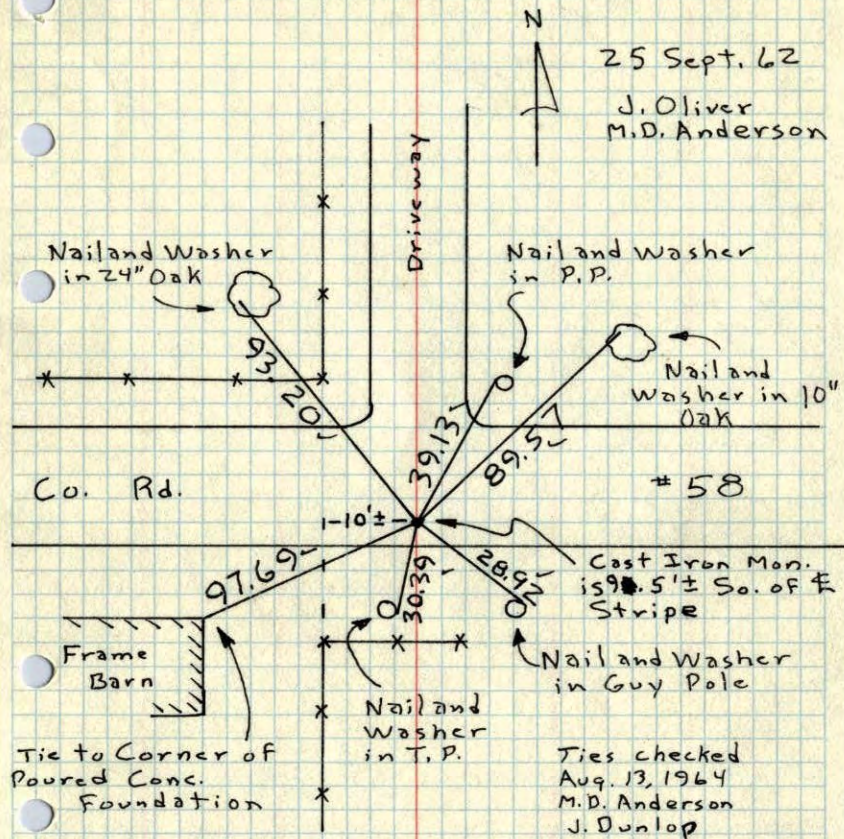 N
25 Sept. 62
J. Oliver
M.D. Anderson
Driveway
Nail and Washer
in 24" Oak
Nail and Washer
in P.P.
Nail and
Washer in 10"
Oak
93.20
39.13
89.57
Co. Rd.
# 58
1-10'±
97.69
30.39
28.92
Cast Iron Mon.
is 9.5'± So. of ℄
Stripe
Frame
Barn
Nail and Washer
in Guy Pole
Nail and
Washer
in T.P.
Tie to Corner of
Poured Conc.
Foundation
Ties checked
Aug. 13, 1964
M.D. Anderson
J. Dunlop